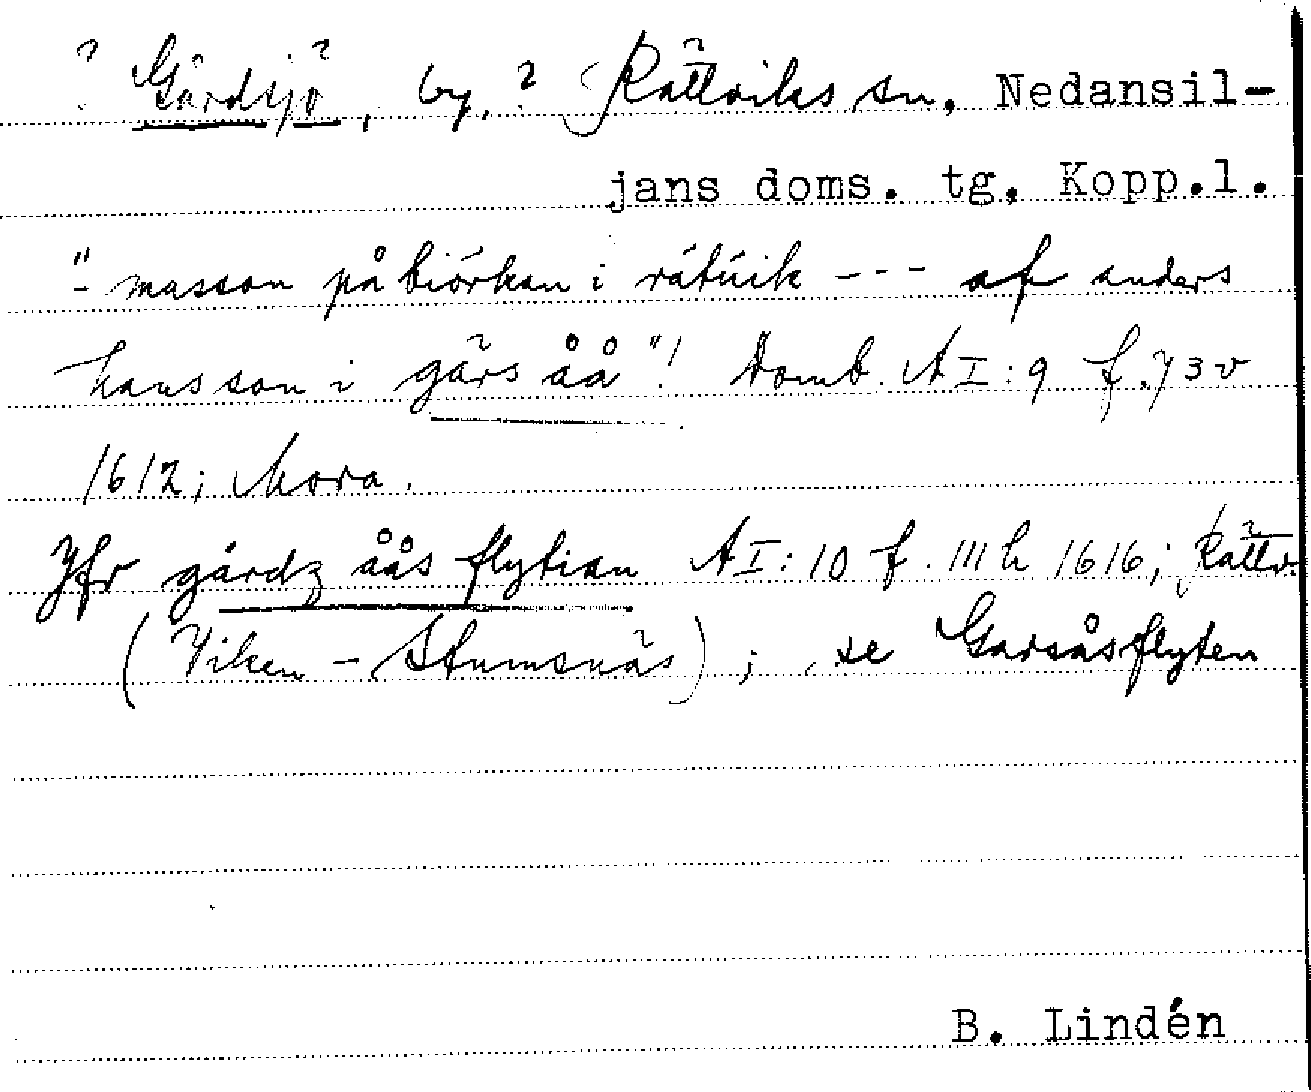 ? Gärdsjö, by, ? Rättviks sn, Nedansil-
jans doms. tg. Kopp.l.
"- masson på biörkan i rätuik --- af anders
hansson i gärs åå"! Domb. A I:9 f.73v
1612; Mora.
Jfr gårdz åås flytian A I:10 f. 111 h 1616; Rättv.
(Viken - Stumsnäs); se Garsåsflyten
B. Lindén